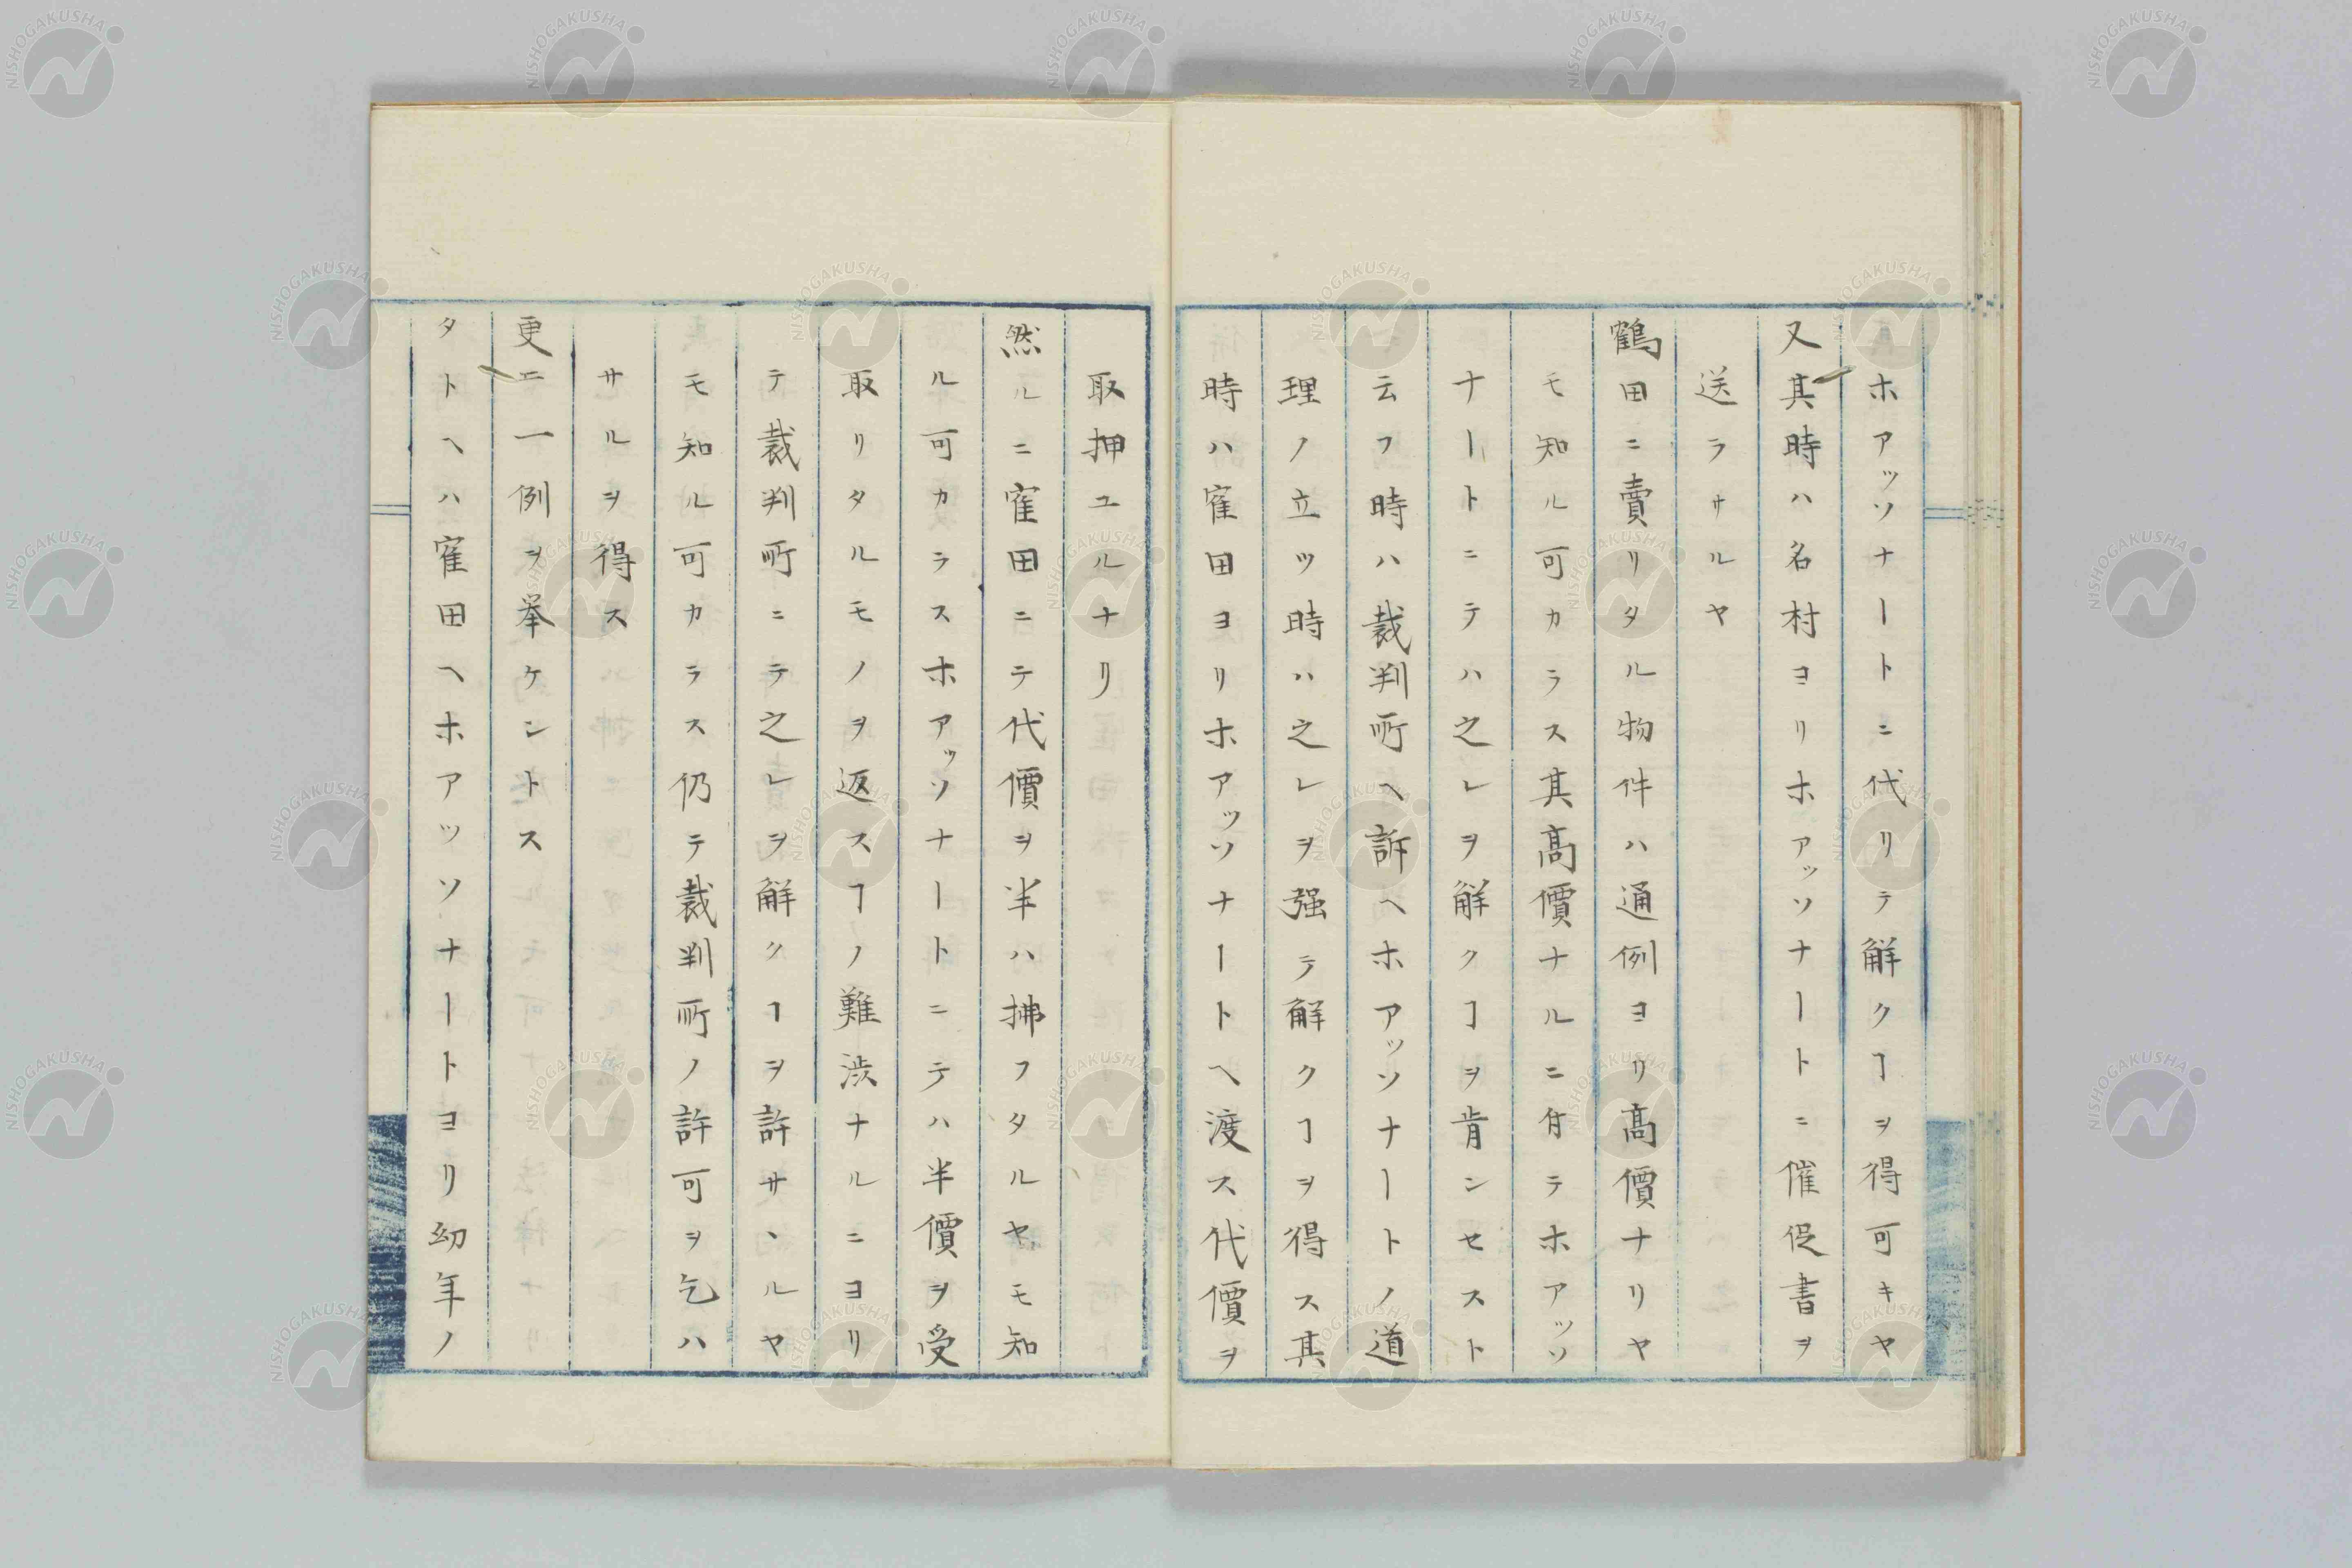 ホアッソナートニ代リテ解クヿヲ得可キヤ
又其時ハ名村ヨリホアッソナートニ催促書ヲ
送ラサルヤ
鶴田ニ賣リタル物件ハ通例ヨリ高價ナリヤ
モ知ル可カラス其高價ナルニ付テホアッソ
ナートニテハ之レヲ解クヿヲ肯ンセスト
云フ時ハ裁判所ヘ訴ヘホアッソナートノ道
理ノ立ツ時ハ之レヲ强テ解クヿヲ得ス其
時ハ寉田ヨリホアッソナートヘ渡ス代價ヲ
取押ユルナリ
然ルニ寉田ニテ代價ヲ半ハ拂フタルヤモ知
ル可カラスホアッソナートニテハ半價ヲ受
取リタルモノヲ返スヿノ難渋ナルニヨリ
テ裁判所ニテ之レヲ解クヿヲ許サヽルヤ
モ知ル可カラス仍テ裁判所ノ許可ヲ乞ハ
サルヲ得ス
更ニ一例ヲ挙ケントス
タトヘハ寉田ヘホアッソナートヨリ幼年ノ
NISHOGAKUSHA